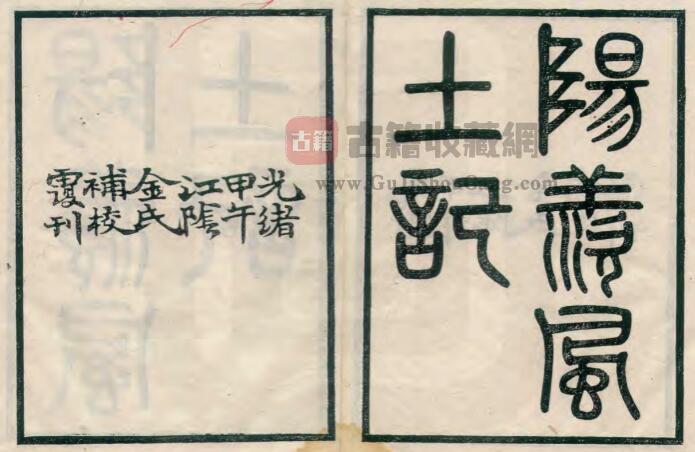 陽羨風
土記
光緒
甲午
江陰
金氏
補校
覆刊
古籍
古籍收藏網
www.GuJiShouCang.com